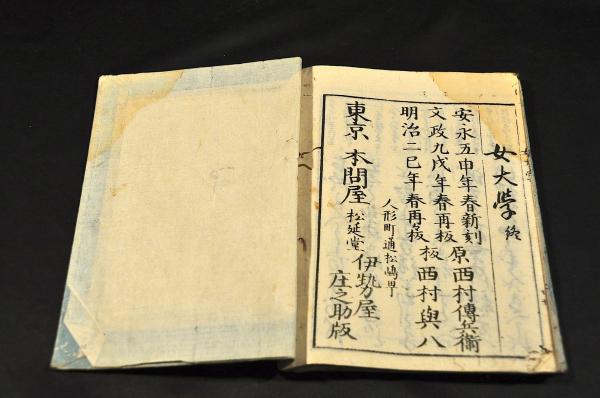 女大学 終
安永五申年春新刻
文政九戌年春再板
明治二巳年春再板
原 西村傳兵衛
板 西村與八
人形町通松嶋町
東京 本問屋 松延堂 伊勢屋
庄之助版